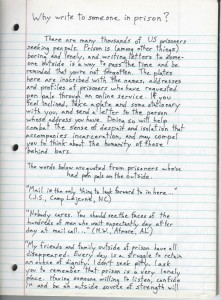 Why write to someone in prison?
There are many thousands of US prisoners
seeking penpals. Prison is (among other things)
boring and lonely, and writing letters to some-
one outside is a way to pass the time and be
reminded that you're not forgotten. The plates
here are inscribed with the names, addresses
and profiles of prisoners who have requested
pen pals through an online service. If you
feel inclined, take a plate and some stationary
with you, and send a letter to the person
whose address you have. Doing so will help
combat the sense of despair and isolation that
accompanies incarceration, and may compel
you to think about the humanity of those
behind bars.
The words below are quoted from prisoners who've
had pen pals on the outside.
"Mail is the only thing to look forward to in here..."
(C.J.S., Camp Lejeune, NC)
"Nobody cares. You should see the faces of the
hundreds of men who wait expectantly day after
day at mail call..." (M.W., Atmore, AL)
"My friends and family outside of prison have all
disappeared. Every day is a struggle to retain
an ounce of dignity. I don't seek pity. I ask
you to remember that prison is a very lonely
place. Having someone willing to listen, confide
in and be an outside source of strength will